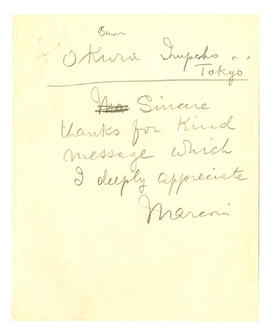 Okura
Tokyo
Sincere
thanks for kind
message which
I deeply appreciate
Marconi